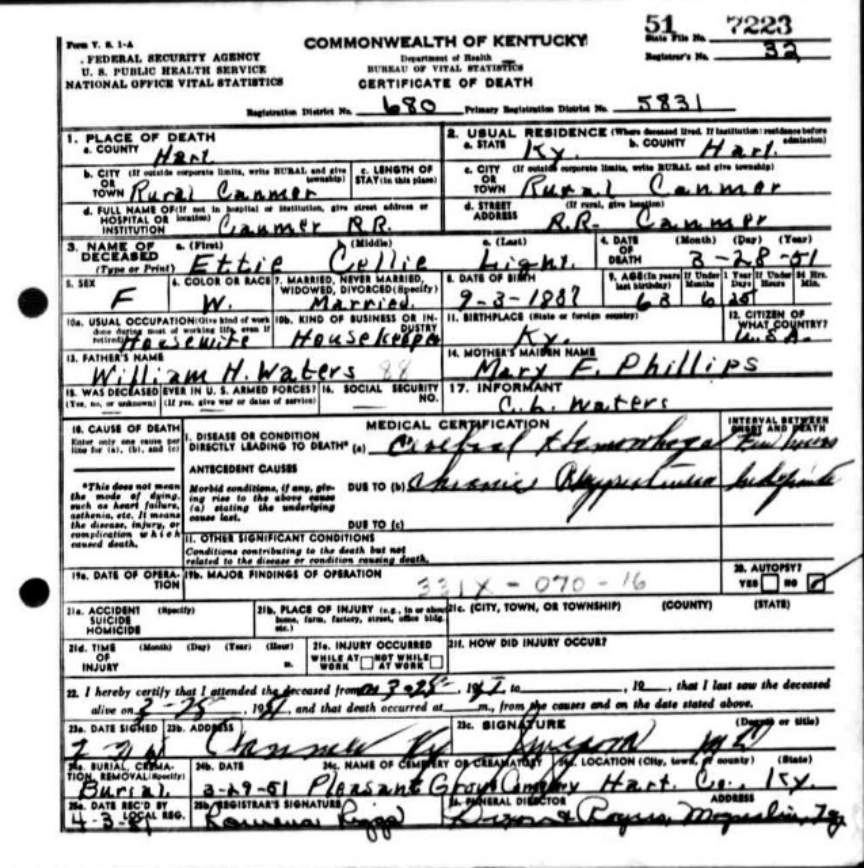 51 7223
Form V. S. 1-A
State File No.
FEDERAL SECURITY AGENCY
U. S. PUBLIC HEALTH SERVICE
NATIONAL OFFICE VITAL STATISTICS
COMMONWEALTH OF KENTUCKY
Department of Health
BUREAU OF VITAL STATISTICS
CERTIFICATE OF DEATH
Registrar's No. 32
Registration District No. 680 Primary Registration District No. 5831
1. PLACE OF DEATH
a. COUNTY Hart
2. USUAL RESIDENCE (Where deceased lived. If institution: residence before admission)
a. STATE Ky. b. COUNTY Hart.
b. CITY (If outside corporate limits, write RURAL and give township)
OR
TOWN Rural Canmer
c. LENGTH OF
STAY (in this place)
c. CITY (If outside corporate limits, write RURAL and give township)
OR
TOWN Rural Canmer
d. FULL NAME OF (If not in hospital or institution, give street address or location)
HOSPITAL OR
INSTITUTION Canmer R.R.
d. STREET (If rural, give location)
ADDRESS R.R. Canmer
3. NAME OF DECEASED (Type or Print)
a. (First) b. (Middle) c. (Last)
Ettie Cellie Light.
4. DATE OF DEATH (Month) (Day) (Year)
3-28-51
5. SEX
F
6. COLOR OR RACE
W.
7. MARRIED, NEVER MARRIED, WIDOWED, DIVORCED (Specify)
Married.
8. DATE OF BIRTH
9-3-1887
9. AGE (In years last birthday) If Under 1 Year Months Days If Under 24 Hrs. Hours Min.
63 6 25
10a. USUAL OCCUPATION (Give kind of work done during most of working life, even if retired)
Housewife
10b. KIND OF BUSINESS OR INDUSTRY
Housekeeper
11. BIRTHPLACE (State or foreign country)
Ky.
12. CITIZEN OF WHAT COUNTRY?
U.S.A.
13. FATHER'S NAME
William H. Waters 88
14. MOTHER'S MAIDEN NAME
Mary F. Phillips
15. WAS DECEASED EVER IN U. S. ARMED FORCES?
(Yes, no, or unknown) (If yes, give war or dates of service)
16. SOCIAL SECURITY NO.
17. INFORMANT
C. L. Waters
18. CAUSE OF DEATH
Enter only one cause per line for (a), (b), and (c)
*This does not mean the mode of dying, such as heart failure, asthenia, etc. It means the disease, injury, or complication which caused death.
MEDICAL CERTIFICATION
INTERVAL BETWEEN ONSET AND DEATH
I. DISEASE OR CONDITION
DIRECTLY LEADING TO DEATH* (a) Cerebral Hemorrhage Few hours
ANTECEDENT CAUSES
Morbid conditions, if any, giving rise to the above cause (a) stating the underlying cause last.
DUE TO (b) Chronic Hypertension Indefinite
DUE TO (c)
II. OTHER SIGNIFICANT CONDITIONS
Conditions contributing to the death but not related to the disease or condition causing death.
19a. DATE OF OPERATION
19b. MAJOR FINDINGS OF OPERATION
331X-070-16
20. AUTOPSY?
YES NO
21a. ACCIDENT (Specify)
SUICIDE
HOMICIDE
21b. PLACE OF INJURY (e.g., in or about home, farm, factory, street, office bldg., etc.)
21c. (CITY, TOWN, OR TOWNSHIP) (COUNTY) (STATE)
21d. TIME (Month) (Day) (Year) (Hour)
OF
INJURY m.
21e. INJURY OCCURRED
WHILE AT WORK NOT WHILE AT WORK
21f. HOW DID INJURY OCCUR?
22. I hereby certify that I attended the deceased from 3-25-, 1951 to , 19 , that I last saw the deceased
alive on 3-25, 1951, and that death occurred at m., from the causes and on the date stated above.
23a. DATE SIGNED
23b. ADDRESS
Canmer Ky
23c. SIGNATURE (Degree or title)
MD
24a. BURIAL, CREMATION, REMOVAL (Specify)
Burial.
24b. DATE
3-29-51
24c. NAME OF CEMETERY OR CREMATORY
Pleasant Grove Cemetery
24d. LOCATION (City, town, or county) (State)
Hart. Co., Ky.
25a. DATE REC'D BY LOCAL REG.
4-3-51
25b. REGISTRAR'S SIGNATURE
26. FUNERAL DIRECTOR ADDRESS